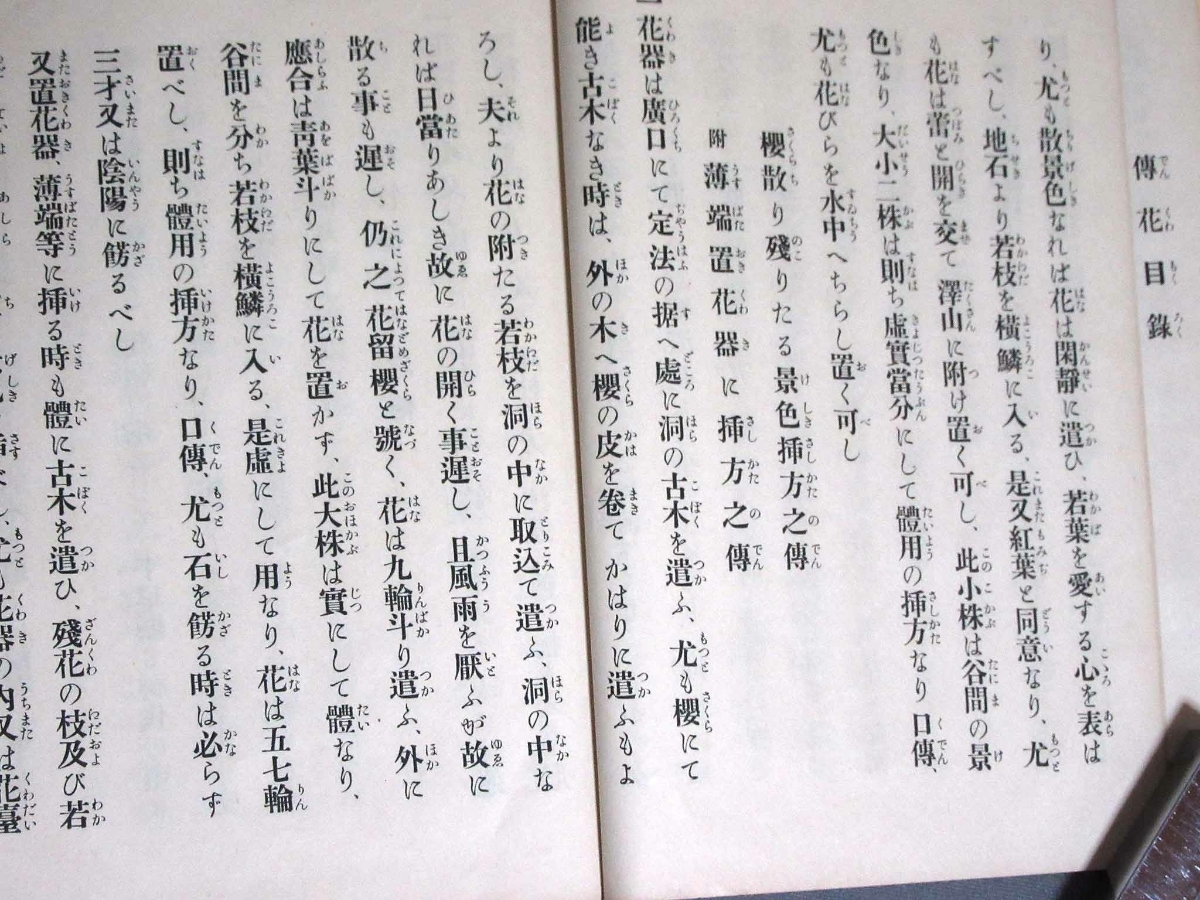 傳花目錄
り、尤も散景色なれば花は閑靜に遣ひ、若葉を愛する心を表は
すべし、地石より若枝を橫鱗に入る、是又紅葉と同意なり、尤
も花は蕾と開を交て澤山に附け置く可し、此小株は谷間の景
色なり、大小二株は則ち虛實當分にして體用の挿方なり口傳、
尤も花びらを水中へちらし置く可し
櫻散り殘りたる景色挿方之傳
附薄端置花器に挿方之傳
一花器は廣口にて定法の据へ處に洞の古木を遣ふ、尤も櫻にて
能き古木なき時は、外の木へ櫻の皮を卷てかはりに遣ふもよ
ろし、夫より花の附たる若枝を洞の中に取込て遣ふ、洞の中な
れば日當りあしき故に花の開く事遲し、且風雨を厭ふが故に
散る事も遲し、仍之花留櫻と號く、花は九輪斗り遣ふ、外に
應合は靑葉斗りにして花を置かす、此大株は實にして體なり、
谷間を分ち若枝を橫鱗に入る、是虛にして用なり、花は五七輪
置べし、則ち體用の挿方なり、口傳、尤も石を餝る時は必らず
三才又は陰陽に餝るべし
又置花器、薄端等に挿る時も體に古木を遣ひ、殘花の枝及び若
べし、尤も花器の內又は花臺